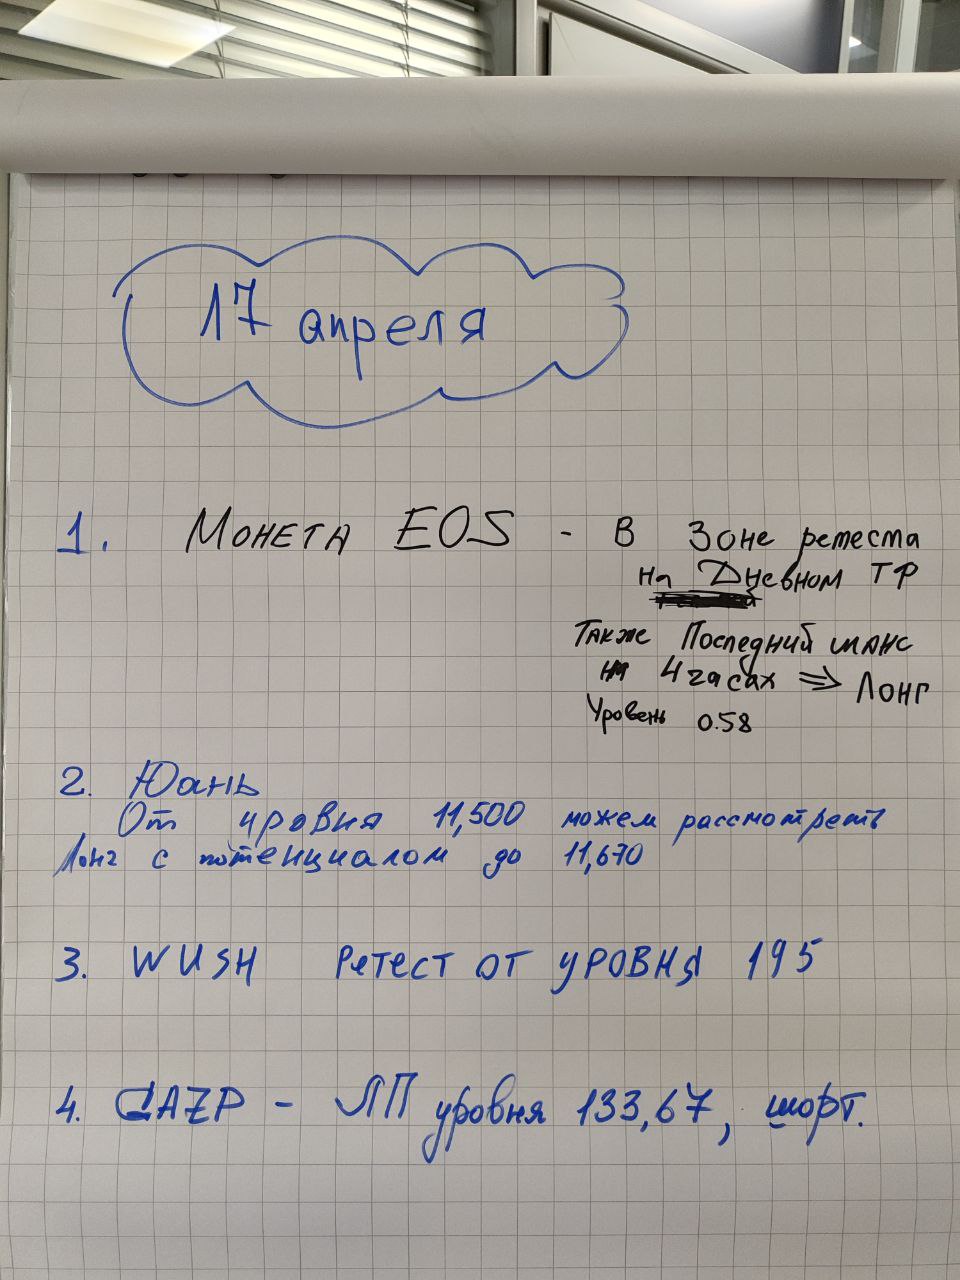 17 апреля
1. Монета EOS - В Зоне ретеста
на Дневном ТФ
Также Последний шанс
на 4 часах => Лонг
Уровень 0.58
2. Юань
От уровня 11,500 можем рассмотреть
Лонг с потенциалом до 11,670
3. WUSH Ретест от уровня 195
4. GAZP - ЛП уровня 133,67, шорт.